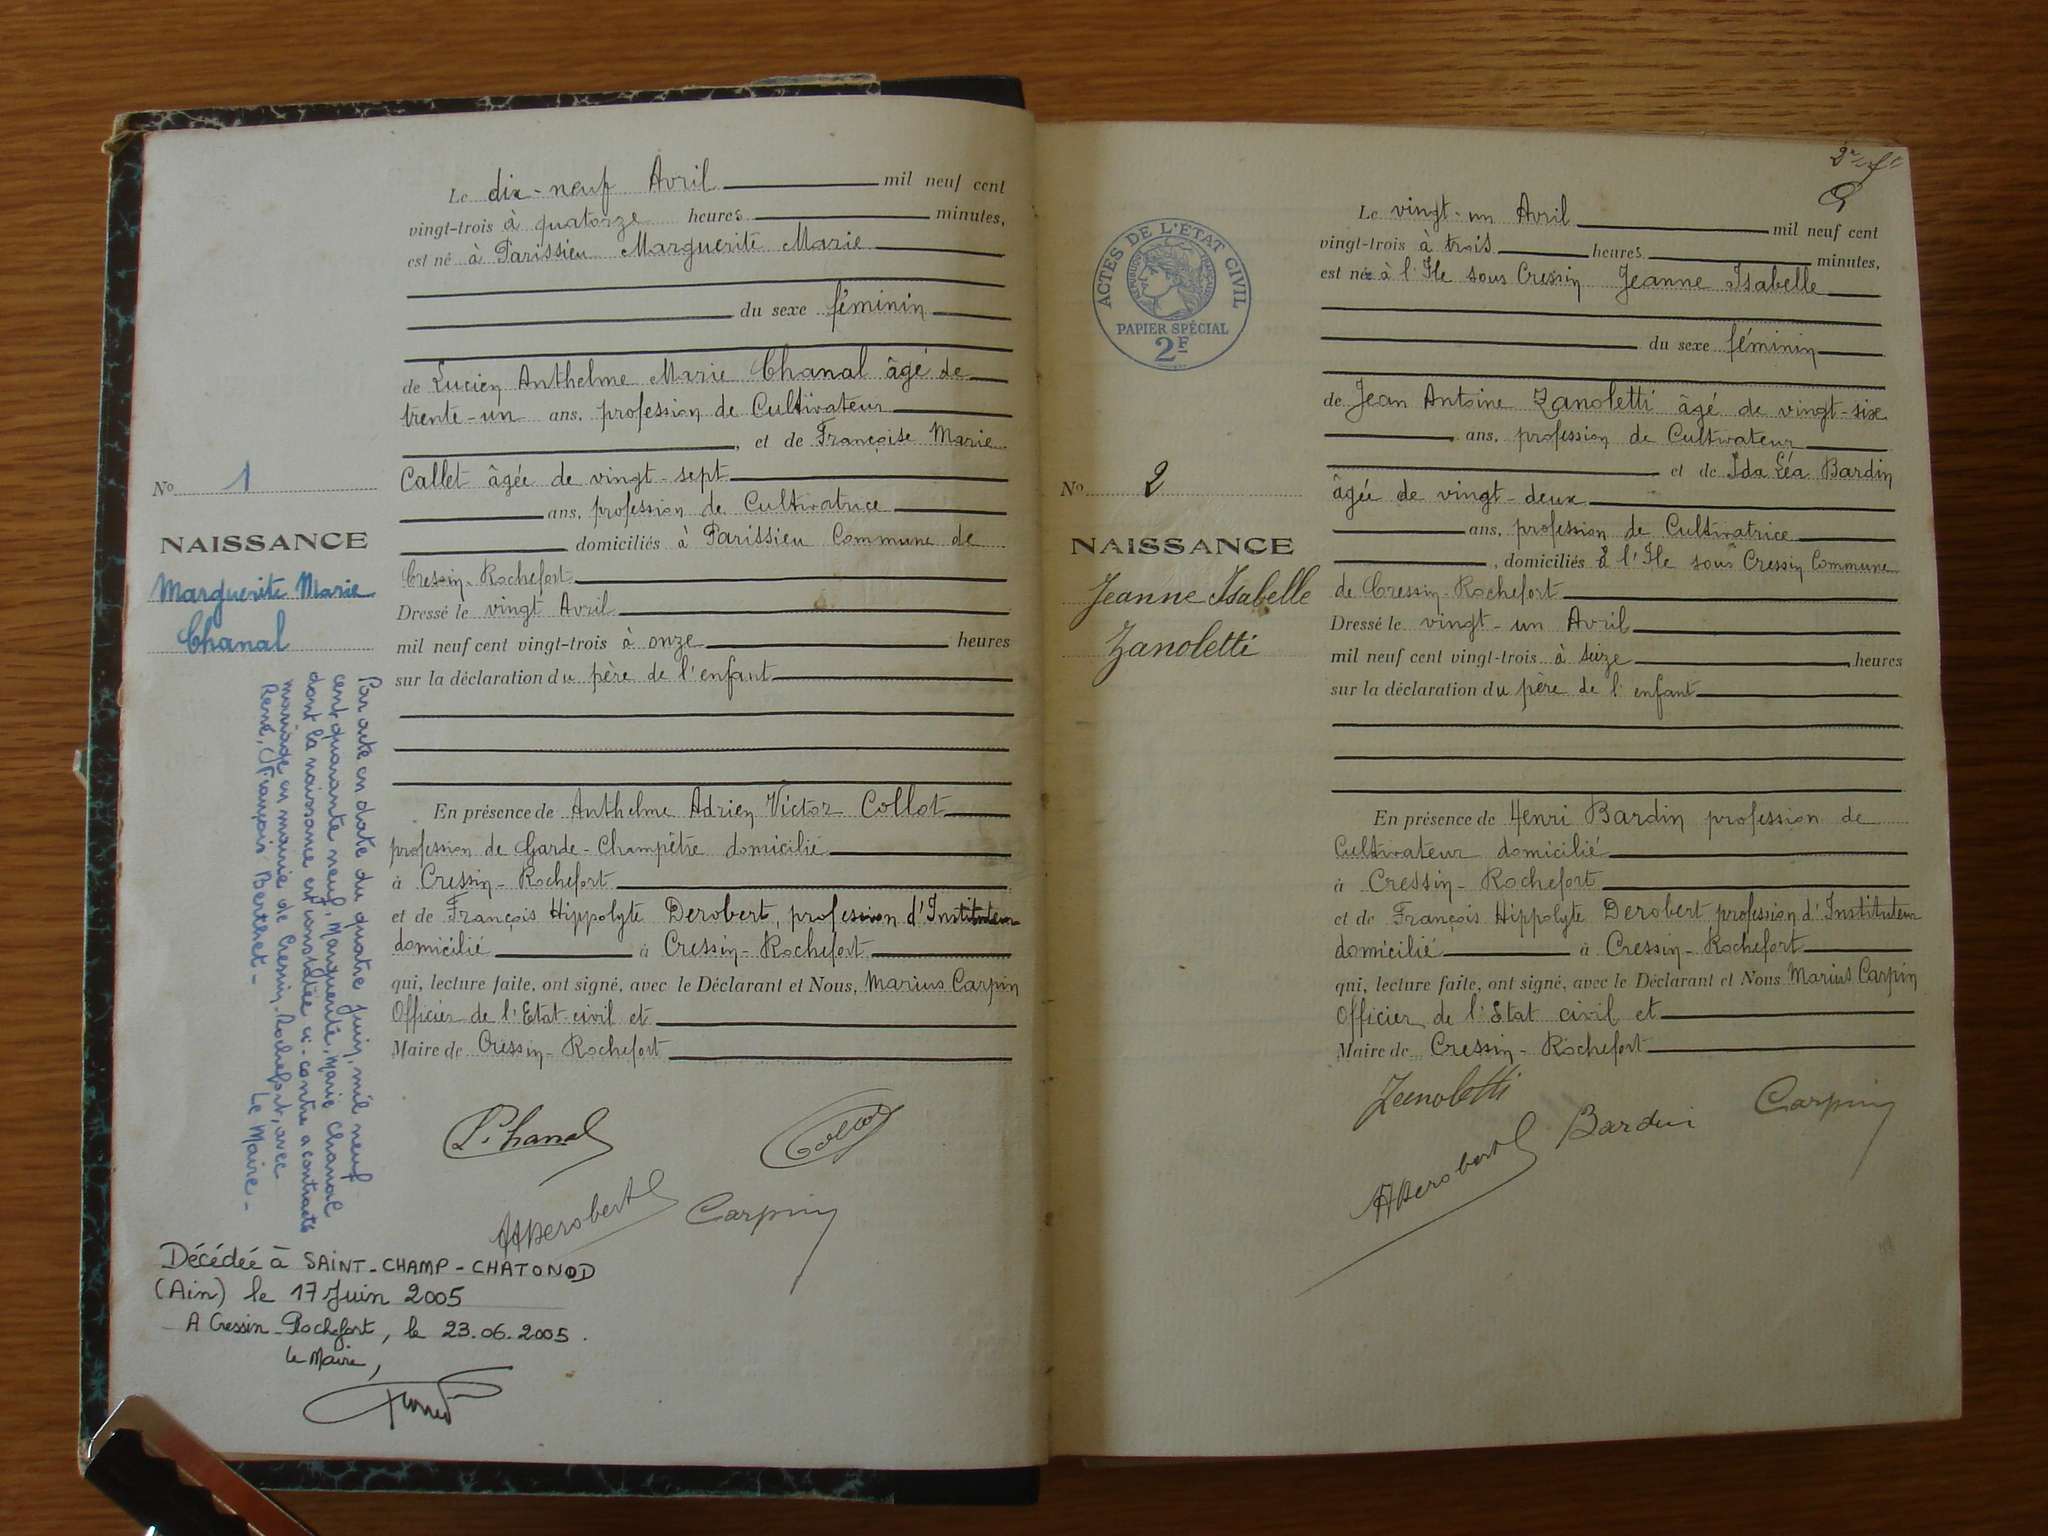 Le dix-neuf Avril mil neuf cent
vingt-trois à quatorze heures minutes,
est né à Parissieu Marguerite Marie
du sexe féminin
de Lucien Anthelme Marie Chanal âgé de
trente-un ans, profession de Cultivateur
, et de Françoise Marie
Callet âgée de vingt-sept
ans, profession de Cultivatrice
domiciliés à Parissieu Commune de
Cressin-Rochefort
Dressé le vingt Avril
mil neuf cent vingt-trois à onze heures
sur la déclaration du père de l'enfant
En présence de Anthelme Adrien Victor Collot
profession de Garde-Champêtre domicilié
à Cressin-Rochefort
et de François Hippolyte Derobert, profession d'Instituteur
domicilié à Cressin-Rochefort
qui, lecture faite, ont signé, avec le Déclarant et Nous, Marius Carpin
Officier de l'Etat civil et
Maire de Cressin-Rochefort
L. Chanal
Collot
Derobert
Carpin
No 1
NAISSANCE
Marguerite Marie
Chanal
Par acte en date du quatre juin mil neuf
cent quarante neuf, Marguerite, Marie Chanal
dont la naissance est constatée ci-contre a contracté
mariage en mairie de Cressin-Rochefort, avec
René, François Berthet -
Le Maire -
Décédée à SAINT-CHAMP-CHATONOD
(Ain) le 17 Juin 2005
A Cressin-Rochefort, le 23.06.2005.
Le Maire,
ACTES DE L'ÉTAT CIVIL
RÉPUBLIQUE FRANÇAISE
PAPIER SPÉCIAL
2F
No 2
NAISSANCE
Jeanne Isabelle
Zanoletti
Le vingt-un Avril mil neuf cent
vingt-trois à trois heures minutes,
est née à l'Ile sous Cressin Jeanne Isabelle
du sexe féminin
de Jean Antoine Zanoletti âgé de vingt-six
ans, profession de Cultivateur
et de Ida Léa Bardin
âgée de vingt-deux
ans, profession de Cultivatrice
, domiciliés à l'Ile sous Cressin Commune
de Cressin-Rochefort
Dressé le vingt-un Avril
mil neuf cent vingt-trois à seize heures
sur la déclaration du père de l'enfant
En présence de Henri Bardin profession de
Cultivateur domicilié
à Cressin-Rochefort
et de François Hippolyte Derobert profession d'Instituteur
domicilié à Cressin-Rochefort
qui, lecture faite, ont signé, avec le Déclarant et Nous Marius Carpin
Officier de l'Etat civil et
Maire de Cressin-Rochefort
Zanoletti
Derobert
Bardin
Carpin